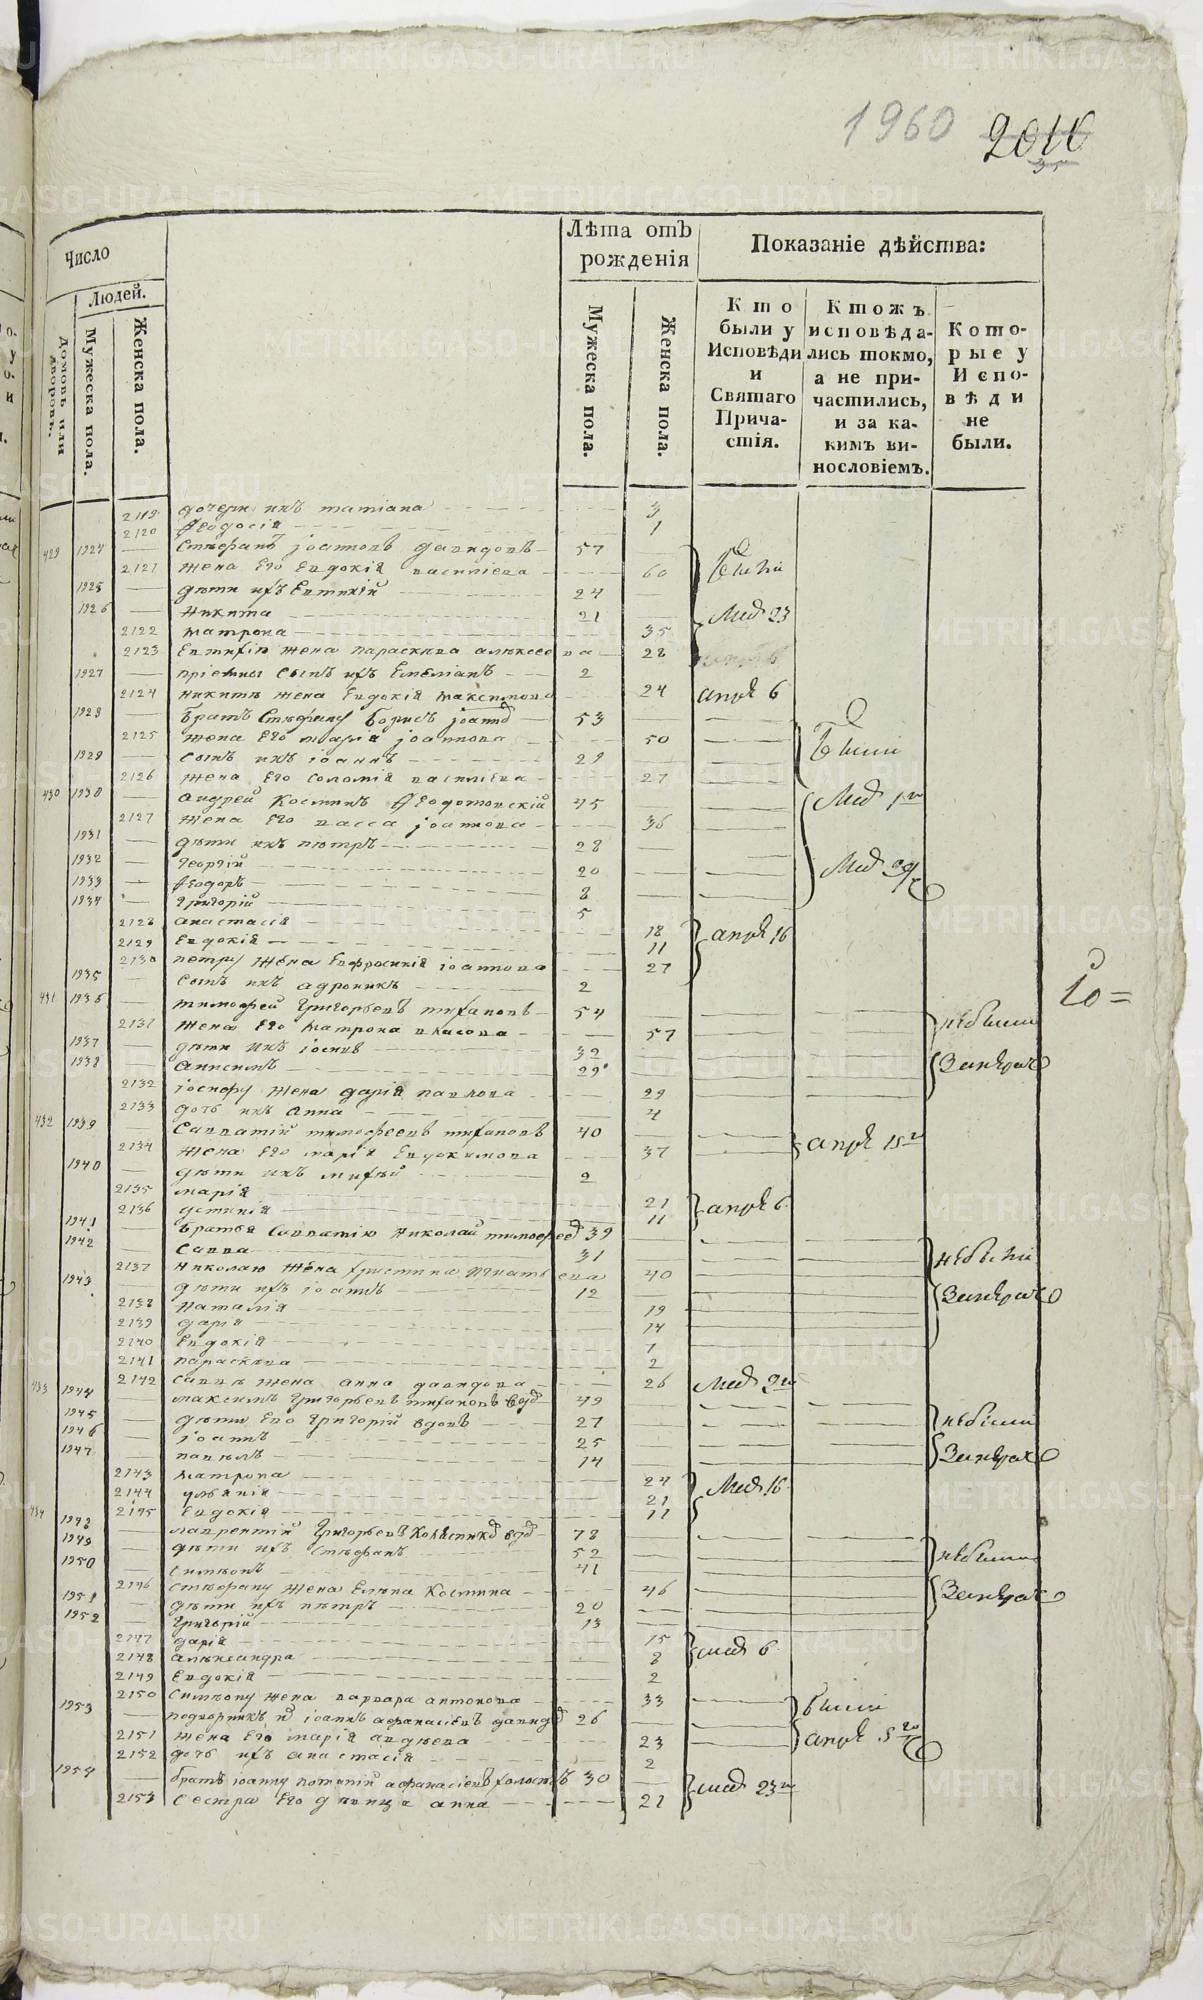 1960 2016
35
Число
Людей.
Домовъ или дворовъ.
Мужеска пола.
Женска пола.
Лѣта отъ рожденія
Мужеска пола.
Женска пола.
Показаніе дѣйства:
Кто были у Исповѣди и Святаго Причастія.
Ктожъ исповѣдались токмо, а не причастились, и за какимъ винословіемъ.
Которые у Исповѣди не были.
2119 дочери ихъ татіана 3
2120 Ѳеодосія 1
429 1924 Стефанъ іоанновъ давидовъ 57
2121 жена Его Евдокія василіева 60 были
1925 дѣти ихъ Евтихій 24
1926 никита 21 23
2122 матрона 35
2123 Евтихія жена параскева алексеева 28
1927 пріемный сынъ ихъ Емеліанъ 2
2124 никиты жена Евдокія максимова 24 апрѣ 6
1928 братъ Стефану борисъ 53
2125 жена Его марія іоаннова 50 были
1929 сынъ ихъ іоаннъ 29
2126 жена Его соломія василіева 27
430 1930 андрей костинъ Ѳеодотовскій 45
2127 жена Его васса іоаннова 36
1931 дѣти ихъ петръ 28
1932 георгій 20
1933 Ѳеодоръ 8
1934 григорій 5
2128 анастасія 18 апрѣ 16
2129 Евдокія 11
2130 петру жена Евфросинія іоаннова 27
1935 сынъ ихъ адроникъ 2
431 1936 тимофей григорьевъ 54 небыли
10=
2131 жена Его матрона власова 57
1937 дѣти ихъ іосифъ 32
1938 анисимъ 29
2132 іосифу жена дарія павлова 29
2133 дочь ихъ анна 4
432 1939 Савватій тимофеевъ 40 апрѣ 15
2134 жена Его марія Евдокимова 37
1940 дѣти ихъ 2
2135 марія 21 апрѣ 6
2136 устинія 11
1941 братья Савватію николай 39
1942 Савва 31 небыли
2137 николаю жена христина игнатьева 40
1943 дѣти ихъ іоаннъ 12
2138 наталія 19
2139 дарія 14
2140 Евдокія 7
2141 параскева 2
2142 саввѣ жена анна давидова 26
433 1944 максимъ григорьевъ 49
1945 дѣти Его григорій вдовъ 27 небыли
1946 іоаннъ 25
1947 павелъ 14
2143 матрона 24 16
2144 уліанія 21
2145 Евдокія 11
434 1948 лаврентій григорьевъ 78
1949 дѣти ихъ стефанъ 52 небыли
1950 симеонъ 41
2146 стефану жена Елена костина 46
1951 дѣти ихъ петръ 20
1952 григорій 13
2147 дарія 15 6
2148 александра 8
2149 Евдокія 2
2150 симеону жена варвара антонова 33 были
1953 іоаннъ афанасіевъ 26 апрѣ 5
2151 жена Его марія авдеева 23
2152 дочь ихъ анастасія 2
1954 братъ іоанну потапій афанасіевъ холостъ 30 23
2153 сестра Его девица анна 21
METRIKI.GASO-URAL.RU